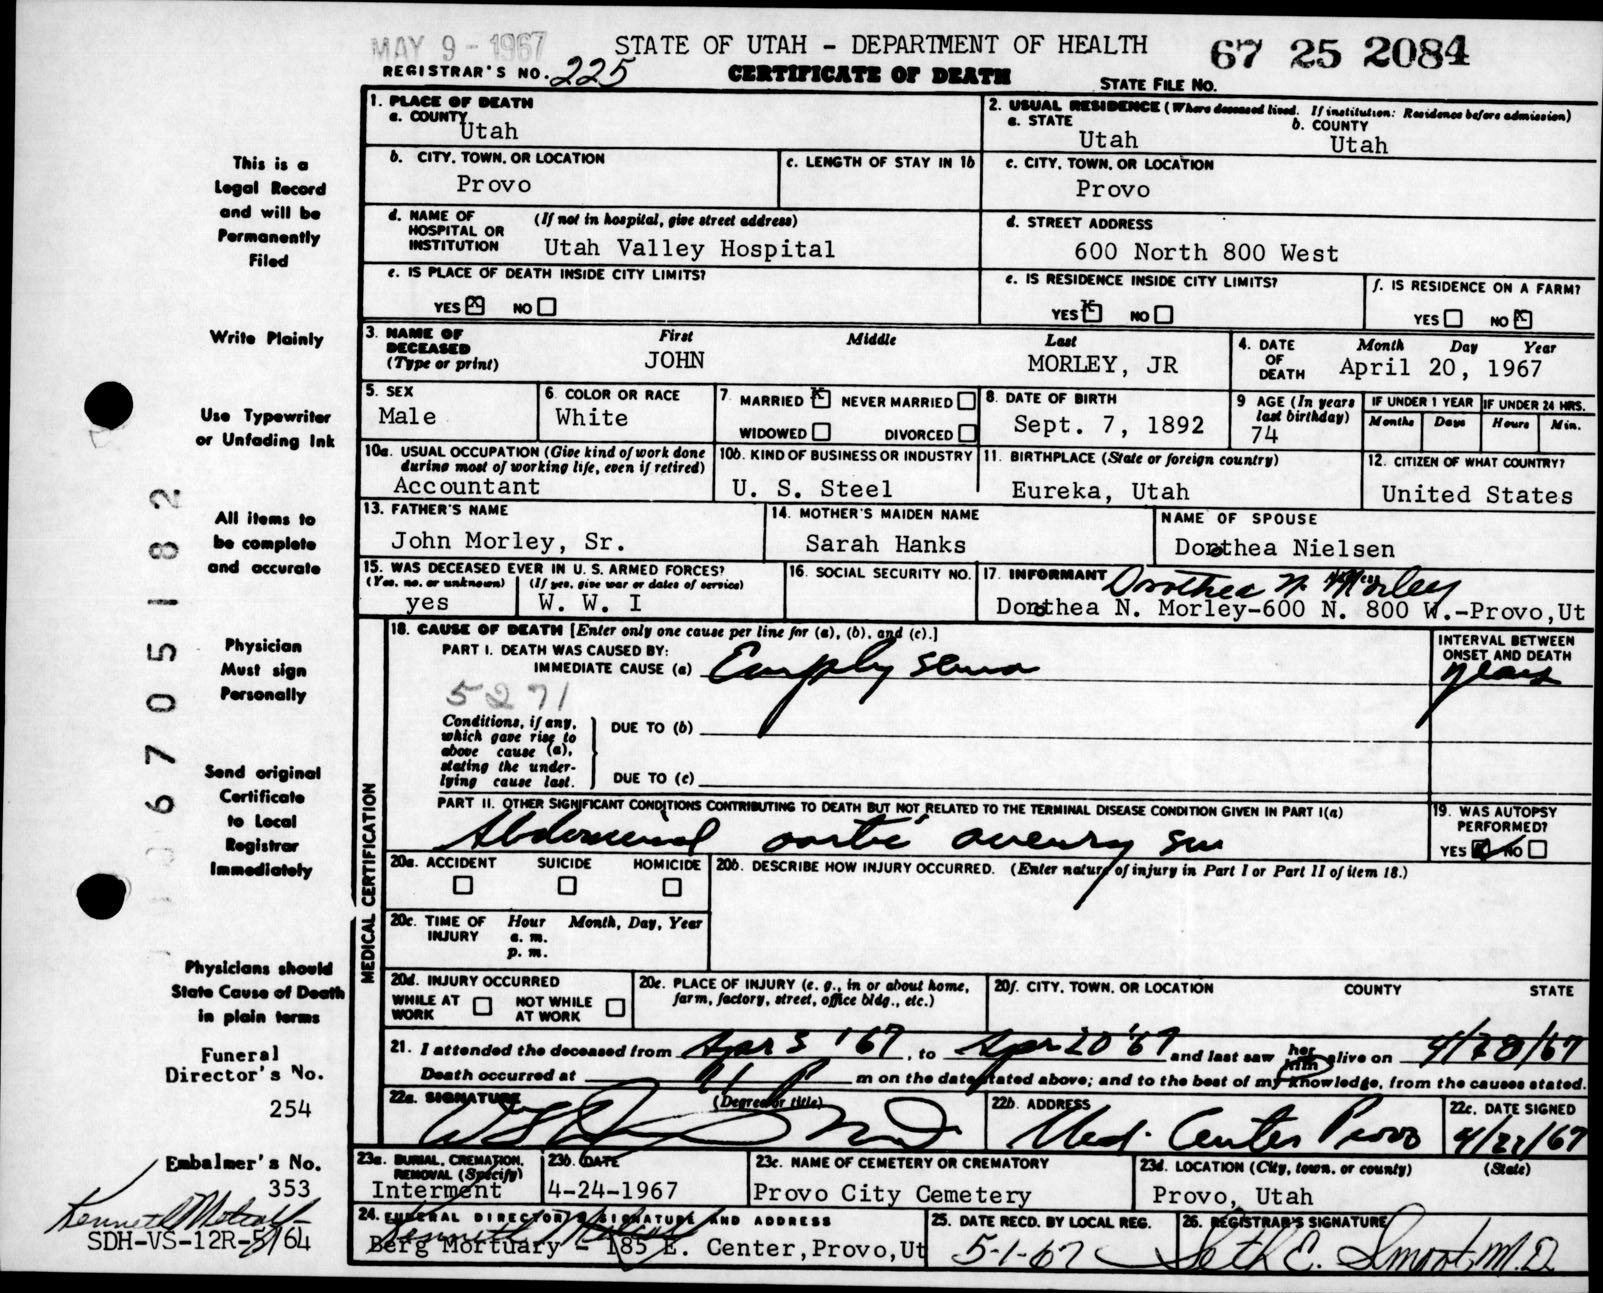 MAY 9 - 1967
STATE OF UTAH - DEPARTMENT OF HEALTH
67 25 2084
REGISTRAR'S NO. 225
CERTIFICATE OF DEATH
STATE FILE NO.
1. PLACE OF DEATH
a. COUNTY
Utah
2. USUAL RESIDENCE (Where deceased lived. If institution: Residence before admission)
a. STATE
Utah
b. COUNTY
Utah
b. CITY, TOWN, OR LOCATION
Provo
c. LENGTH OF STAY IN 1b
c. CITY, TOWN, OR LOCATION
Provo
d. NAME OF HOSPITAL OR INSTITUTION
(If not in hospital, give street address)
Utah Valley Hospital
d. STREET ADDRESS
600 North 800 West
e. IS PLACE OF DEATH INSIDE CITY LIMITS?
YES X NO
e. IS RESIDENCE INSIDE CITY LIMITS?
YES X NO
f. IS RESIDENCE ON A FARM?
YES NO X
3. NAME OF DECEASED (Type or print)
First Middle Last
JOHN MORLEY, JR
4. DATE OF DEATH
Month Day Year
April 20, 1967
5. SEX
Male
6. COLOR OR RACE
White
7. MARRIED X NEVER MARRIED
WIDOWED DIVORCED
8. DATE OF BIRTH
Sept. 7, 1892
9 AGE (In years last birthday)
74
IF UNDER 1 YEAR
Months Days
IF UNDER 24 HRS.
Hours Min.
10a. USUAL OCCUPATION (Give kind of work done during most of working life, even if retired)
Accountant
10b. KIND OF BUSINESS OR INDUSTRY
U. S. Steel
11. BIRTHPLACE (State or foreign country)
Eureka, Utah
12. CITIZEN OF WHAT COUNTRY?
United States
13. FATHER'S NAME
John Morley, Sr.
14. MOTHER'S MAIDEN NAME
Sarah Hanks
NAME OF SPOUSE
Dorothea Nielsen
15. WAS DECEASED EVER IN U. S. ARMED FORCES?
(Yes, no, or unknown) (If yes, give war or dates of service)
yes W. W. I
16. SOCIAL SECURITY NO.
17. INFORMANT
Dorothea N. Morley
Dorothea N. Morley-600 N. 800 W.-Provo,Ut
MEDICAL CERTIFICATION
18. CAUSE OF DEATH [Enter only one cause per line for (a), (b), and (c).]
PART I. DEATH WAS CAUSED BY:
IMMEDIATE CAUSE (a) Emphysema
INTERVAL BETWEEN ONSET AND DEATH
years
5271
Conditions, if any, which gave rise to above cause (a), stating the underlying cause last.
DUE TO (b)
DUE TO (c)
PART II. OTHER SIGNIFICANT CONDITIONS CONTRIBUTING TO DEATH BUT NOT RELATED TO THE TERMINAL DISEASE CONDITION GIVEN IN PART I(a)
Abdominal aortic aneurysm
19. WAS AUTOPSY PERFORMED?
YES NO
20a. ACCIDENT SUICIDE HOMICIDE
20b. DESCRIBE HOW INJURY OCCURRED. (Enter nature of injury in Part I or Part II of item 18.)
20c. TIME OF INJURY
Hour Month, Day, Year
a. m.
p. m.
20d. INJURY OCCURRED
WHILE AT WORK NOT WHILE AT WORK
20e. PLACE OF INJURY (e. g., in or about home, farm, factory, street, office bldg., etc.)
20f. CITY, TOWN, OR LOCATION COUNTY STATE
21. I attended the deceased from Apr 3 '67, to Apr 20 '67 and last saw her him alive on 4/20/67
Death occurred at m on the date stated above; and to the best of my knowledge, from the causes stated.
22a. SIGNATURE (Degree or title)
22b. ADDRESS
Med. Center Provo
22c. DATE SIGNED
4/22/67
23a. BURIAL, CREMATION, REMOVAL (Specify)
Interment
23b. DATE
4-24-1967
23c. NAME OF CEMETERY OR CREMATORY
Provo City Cemetery
23d. LOCATION (City, town, or county) (State)
Provo, Utah
24. FUNERAL DIRECTOR'S SIGNATURE AND ADDRESS
Kenneth Metcalf
Berg Mortuary - 185 E. Center,Provo,Ut
25. DATE RECD. BY LOCAL REG.
5-1-67
26. REGISTRAR'S SIGNATURE
Seth E. Smoot, M.D.
This is a
Legal Record
and will be
Permanently
Filed
Write Plainly
Use Typewriter
or Unfading Ink
All items to
be complete
and accurate
Physician
Must sign
Personally
Send original
Certificate
to Local
Registrar
Immediately
Physicians should
State Cause of Death
in plain terms
Funeral
Director's No.
254
Embalmer's No.
353
Kenneth Metcalf
SDH-VS-12R-5/64
67 05 182